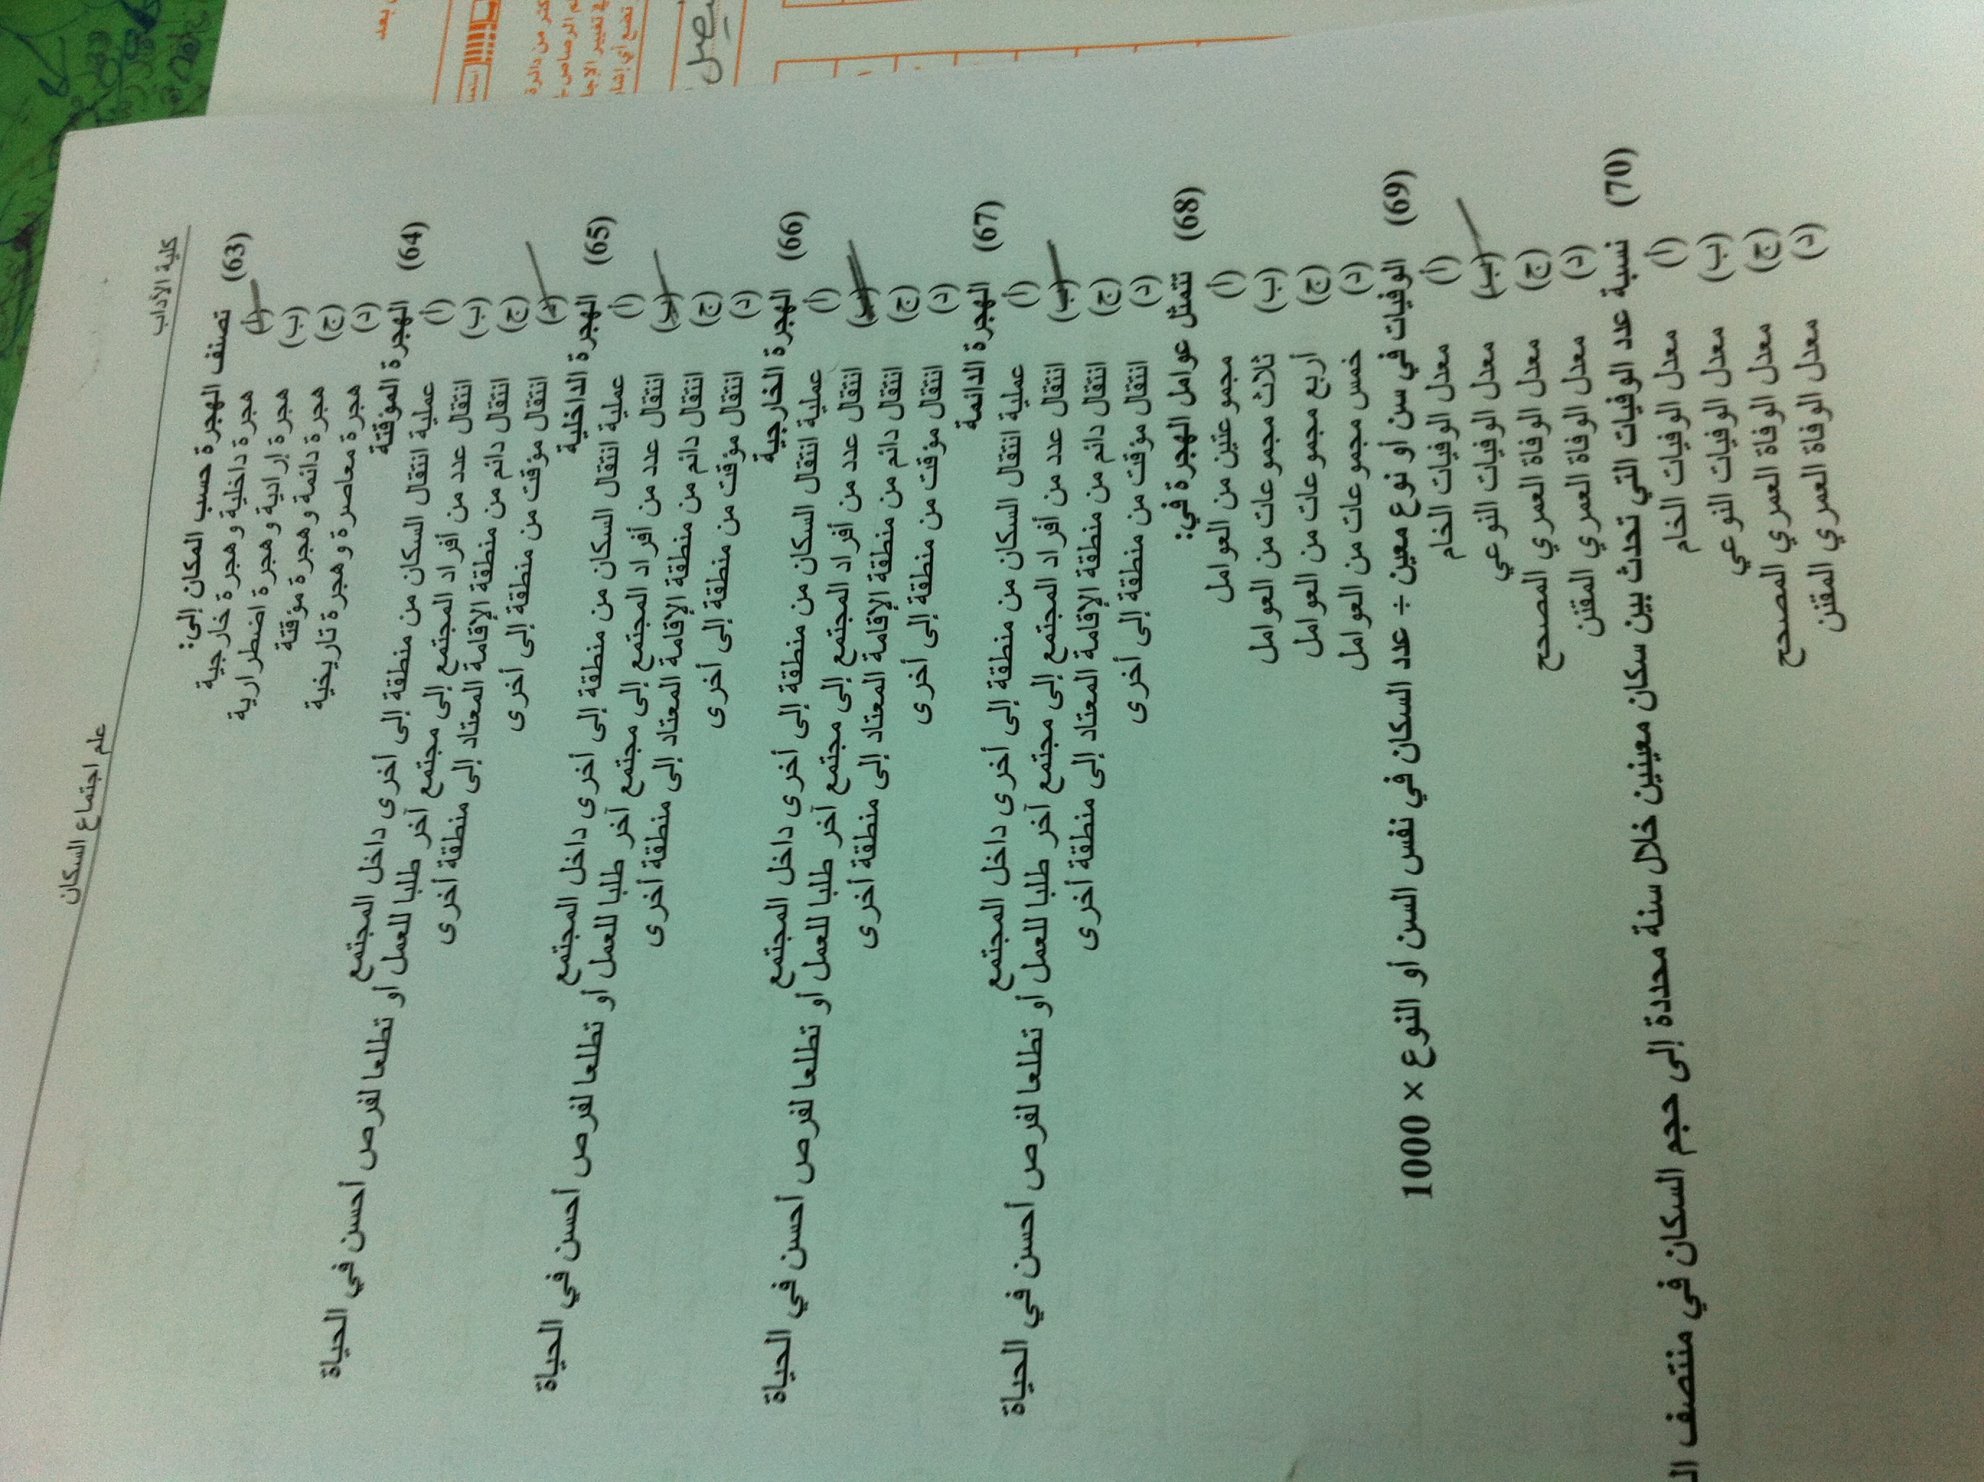 كلية الأداب
علم اجتماع السكان
(63) تصنف الهجرة حسب المكان إلى:
(أ) هجرة داخلية وهجرة خارجية
(ب) هجرة إرادية وهجرة اضطرارية
(ج) هجرة دائمة وهجرة مؤقتة
(د) هجرة معاصرة وهجرة تاريخية
(64) الهجرة المؤقتة
(أ) عملية انتقال السكان من منطقة إلى أخرى داخل المجتمع
(ب) انتقال عدد من أفراد المجتمع إلى مجتمع آخر طلبا للعمل أو تطلعا لفرص أحسن في الحياة
(ج) انتقال دائم من منطقة الإقامة المعتاد إلى منطقة أخرى
(د) انتقال مؤقت من منطقة إلى أخرى
(65) الهجرة الداخلية
(أ) عملية انتقال السكان من منطقة إلى أخرى داخل المجتمع
(ب) انتقال عدد من أفراد المجتمع إلى مجتمع آخر طلبا للعمل أو تطلعا لفرص أحسن في الحياة
(ج) انتقال دائم من منطقة الإقامة المعتاد إلى منطقة أخرى
(د) انتقال مؤقت من منطقة إلى أخرى
(66) الهجرة الخارجية
(أ) عملية انتقال السكان من منطقة إلى أخرى داخل المجتمع
(ب) انتقال عدد من أفراد المجتمع إلى مجتمع آخر طلبا للعمل أو تطلعا لفرص أحسن في الحياة
(ج) انتقال دائم من منطقة الإقامة المعتاد إلى منطقة أخرى
(د) انتقال مؤقت من منطقة إلى أخرى
(67) الهجرة الدائمة
(أ) عملية انتقال السكان من منطقة إلى أخرى داخل المجتمع
(ب) انتقال عدد من أفراد المجتمع إلى مجتمع آخر طلبا للعمل أو تطلعا لفرص أحسن في الحياة
(ج) انتقال دائم من منطقة الإقامة المعتاد إلى منطقة أخرى
(د) انتقال مؤقت من منطقة إلى أخرى
(68) تتمثل عوامل الهجرة في:
(أ) مجموعتين من العوامل
(ب) ثلاث مجموعات من العوامل
(ج) أربع مجموعات من العوامل
(د) خمس مجموعات من العوامل
(69) الوفيات في سن أو نوع معين ÷ عدد السكان في نفس السن أو النوع × 1000
(أ) معدل الوفيات الخام
(ب) معدل الوفيات النوعي
(ج) معدل الوفاة العمري المصحح
(د) معدل الوفاة العمري المقنن
(70) نسبة عدد الوفيات التي تحدث بين سكان معينين خلال سنة محددة إلى حجم السكان في منتصف
(أ) معدل الوفيات الخام
(ب) معدل الوفيات النوعي
(ج) معدل الوفاة العمري المصحح
(د) معدل الوفاة العمري المقنن